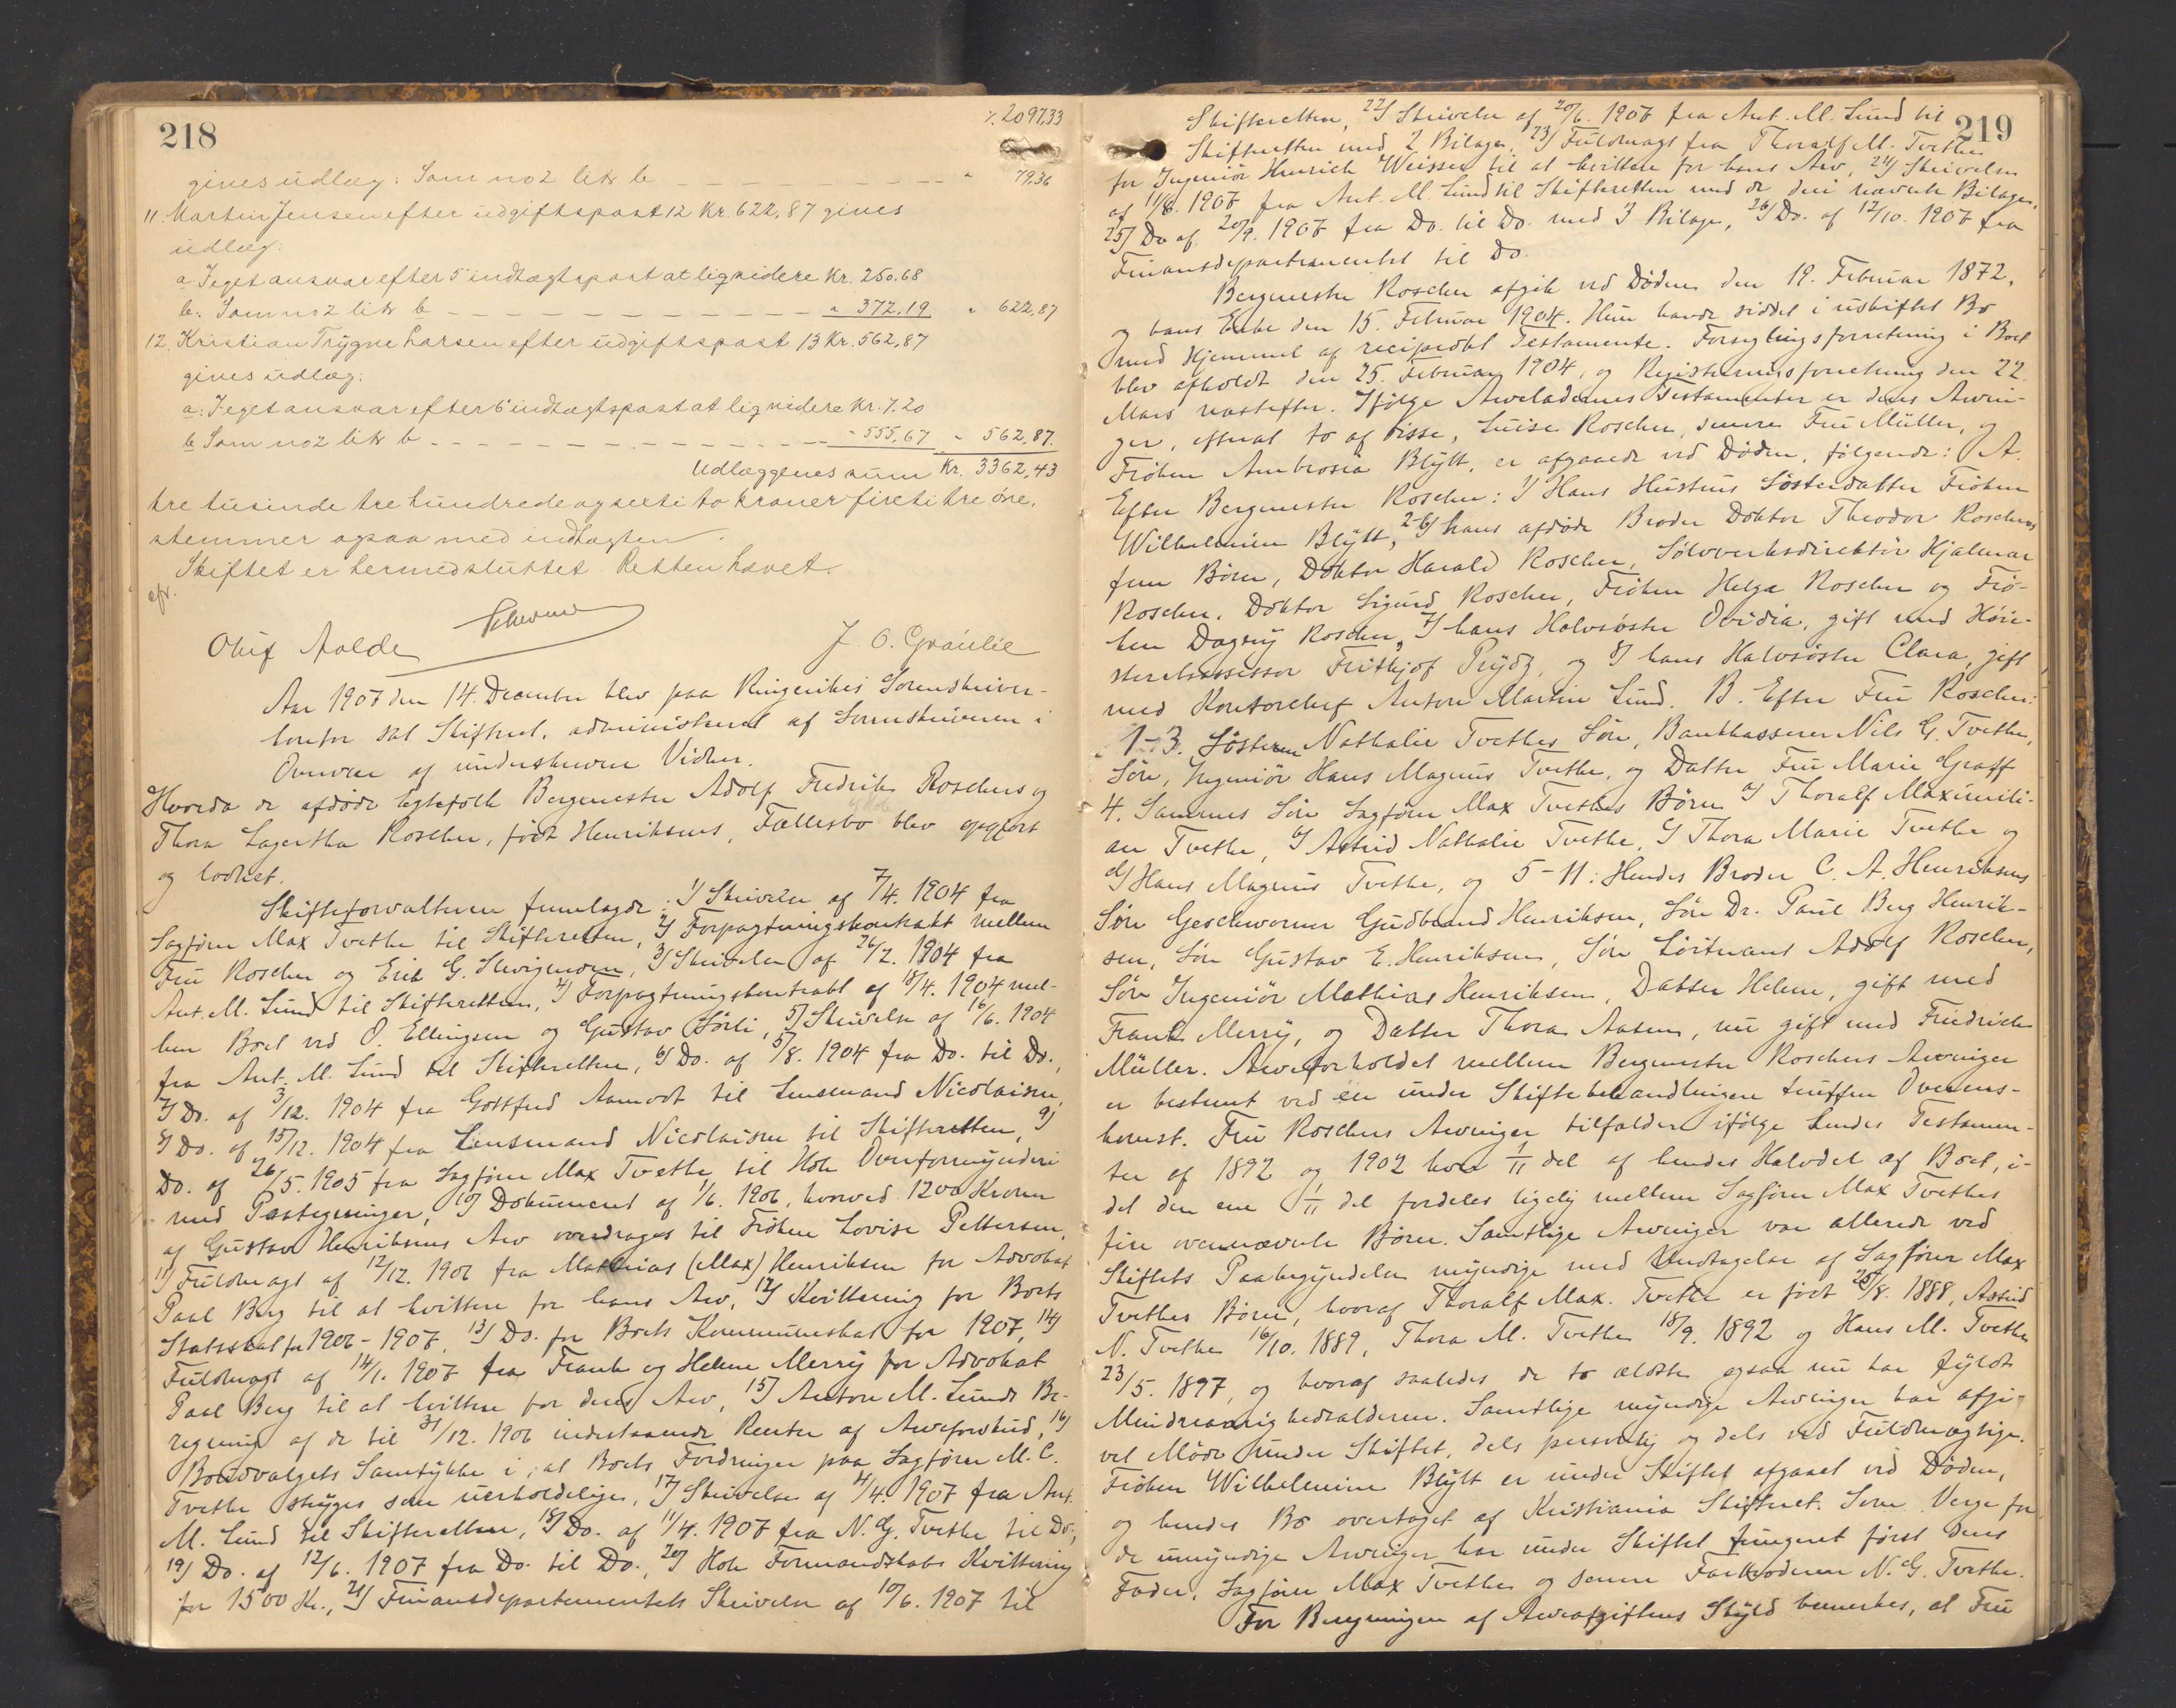 218
%. 2097,33
gives udlæg: Som no 2 litr b " 79,36
11. Martin Jensen efter udgiftspost 12 Kr. 622,87 gives
udlæg:
a. I eget ansvar efter 5 indtægtspost at liqvidere Kr. 250.68
b: Som no 2 litr b " 372,19 " 622,87
12. Kristian Trygve Larsen efter udgiftspost 13 Kr. 562,87
gives udlæg:
a: I eget ansvar efter 6 indtægtspost at liqvidere Kr. 7.20
b Som no 2 litr b " 555,67 " 562,87.
Udlæggenes sum Kr. 3362,43
tre tusinde tre hundrede og sexti to kroner fireti tre öre.
stemmer ogsaa med indtægten.
Skiftet er hermed sluttet. Retten hævet.
Oluf Aalde
J. O. Gräulie
Aar 1907 den 14. December blev paa Ringerikes Sorenskriver-
kontor sat Skifteret, administreret af Sorenskriveren i
Overvær af underskrevne Vidner.
Hvorda de afdøde Egtefolk Bergmester Adolf Fredrik Roschers og
Thora Lagertha Roscher, født Henriksens, Fællesbo blev opgjort
og loddet.
Skifteforvalteren fremlagde: 1) Skrivelse af 7/4. 1904 fra
Sagfører Max Tvethe til Skifteretten, 2) Forpagtningskontrakt mellem
Fru Roscher og Erik G. 3) Skrivelse af 26/2. 1904 fra
Ant. M. Lund til Skifteretten, 4) Forpagtningskontrakt af 18/4. 1904 mel-
lem Boet ved O. Ellingsen og Gustav Sørli, 5) Skrivelse af 16/6. 1904
fra Ant. M. Lund til Skifteretten, 6) Do. af 5/8. 1904 fra Do. til Do.,
7) Do. af 3/12. 1904 fra Gottfred Aamodt til Lensmand Nicolaisen,
8) Do. af 15/12. 1904 fra Lensmand Nicolaisen til Skifteretten, 9)
Do. af 26/5. 1905 fra Sagfører Max Tvethe til Hole Overformynderi
med Pategninger, 10) Dokument af 1/6. 1906, hvorved 1200 Kroner
af Gustav Henriksens Arv overdrages til Frøken Lovise Pettersen,
11) Fuldmagt af 12/12. 1906 fra Mathias (Max) Henriksen for Advokat
Paal Berg til at kvittere for hans Arv, 12) Kvittering for Boets
Statsskat for 1906-1907, 13) Do. for Boets Kommuneskat for 1907, 14)
Fuldmagt af 14/1. 1907 fra Frank og Helene Merry for Advokat
Paal Berg til at kvittere for deres Arv, 15) Anton M. Lunds Be-
regning af de til 31/12. 1906 indestaaende Renter af Arveforskud, 16)
Boudvalgets Samtykke i, at Boets Fordringer paa Sagfører M. C.
Tvethe stryges som uerholdelige, 17) Skrivelse af 4/4. 1907 fra Ant.
M. Lund til Skifteretten, 18) Do. af 11/4. 1907 fra N. G. Tvethe til Do.,
19) Do. af 12/6. 1907 fra Do. til Do., 20) Hole Formandskabs Kvittering
for 1500 Kr., 21) Finansdepartementets Skrivelse af 10/6. 1907 til
219
Skifteretten, 22) Skrivelse af 20/6. 1907 fra Ant. M. Lund til
Skifteretten med 2 Bilager, 23) Fuldmagt fra Thoralf M. Tvethe
for Ingeniør Henrich Weisser til at kvittere for hans Arv, 24) Skrivelse
af 11/8. 1907 fra Ant. M. Lund til Skifteretten med de deri nævnte Bilager,
25) Do af 20/9. 1907 fra Do. til Do. med 3 Bilager, 26) Do. af 12/10. 1907 fra
Finansdepartementet til Do.
Bergmester Roscher afgik ved Døden den 19. Februar 1872,
og hans Enke den 15. Februar 1904. Hun havde siddet i uskiftet Bo
med Hjemmel af reciprokt Testamente. Forseglingsforretning i Boet
blev afholdt den 25. Februar 1904, og Registreringsforretning den 22.
Mars næstefter. Ifølge Arveladernes Testamenter er deres Arvin-
ger, efterat to af disse, Luise Roscher, senere Fru Müller, og
Frøken Ambrosia Blytt, er afgaaede ved Døden, følgende: A.
Efter Bergmester Roscher: 1) Hans Hustrus Søsterdatter Frøken
Wilhelmine Blytt, 2-6) hans afdøde Broder Doktor Theodor Roschers
fem Børn, Doktor Harald Roscher, Sølvverksdirektør Hjalmar
Roscher, Doktor Sigurd Roscher, Frøken Helga Roscher og Frø-
ken Dagny Roscher, 7) hans Halvsøster Ovidia, gift med Høie-
steretsassessor Frithjof Prydz, og 8) hans Halvsøster Clara, gift
med Kontorchef Anton Martin Lund. B. Efter Fru Roscher:
1-3. Søsteren Nathalie Tvethes Søn, Bankkasserer Nils G. Tvethe,
Søn, Ingeniør Hans Magnus Tvethe, og Datter Fru Marie Graff
4. Sammes Søn Sagfører Max Tvethes Børn a) Thoralf Maximili-
an Tvethe, b) Astrid Nathalie Tvethe, c) Thora Marie Tvethe og
d) Hans Magnus Tvethe, og 5-11: Hendes Broder C. A. Henriksens
Søn Geschworner Gudbrand Henriksen, Søn Dr. Paul Berg Henrik-
sen, Søn Gustav E. Henriksen, Søn Løitnant Adolf Roscher,
Søn Ingeniør Mathias Henriksen, Datter Helene, gift med
Frank Merry, og Datter Thora Aasen, nu gift med Friedrich
Müller. Arveforholdet mellem Bergmester Roschers Arvinger
er bestemt ved en under Skiftebehandlingen truffen Overens-
komst. Fru Roschers Arvinger tilfalder ifølge hendes Testamen-
ter af 1892 og 1902 hver 1/11 del af hendes Halvdel af Boet, i-
det den ene 1/11 del fordeles ligelig mellem Sagfører Max Tvethes
fire ovennævnte Børn. Samtlige Arvinger var allerede ved
Skiftets Paabegyndelse myndige med Undtagelse af Sagfører Max
Tvethes Børn, hvoraf Thoralf Max. Tvethe er født 25/8. 1888, Astrid
N. Tvethe 16/10. 1889, Thora M. Tvethe 18/9. 1892 og Hans M. Tvethe
23/5. 1897, og hvoraf saaledes de to ældste ogsaa nu har fyldt
Mindreaarighedsalderen. Samtlige myndige Arvinger har afgi-
vet Møde under Skiftet, dels personlig og dels ved Fuldmægtige.
Frøken Wilhelmine Blytt er under Skiftet afgaaet ved Døden,
og hendes Bo overtaget af Kristiania Skifteret. Som Verge for
de umyndige Arvinger har under Skiftet fungeret først deres
Fader, Sagfører Max Tvethe og senere Farbroderen N. G. Tvethe.
For Beregningen af Arveafgiftens Skyld bemerkes, at Fru